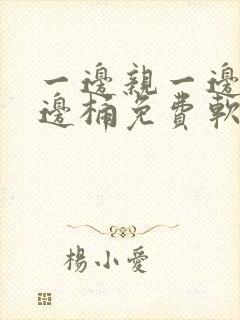 一邊親一邊
邊桶免費軟
楊小愛